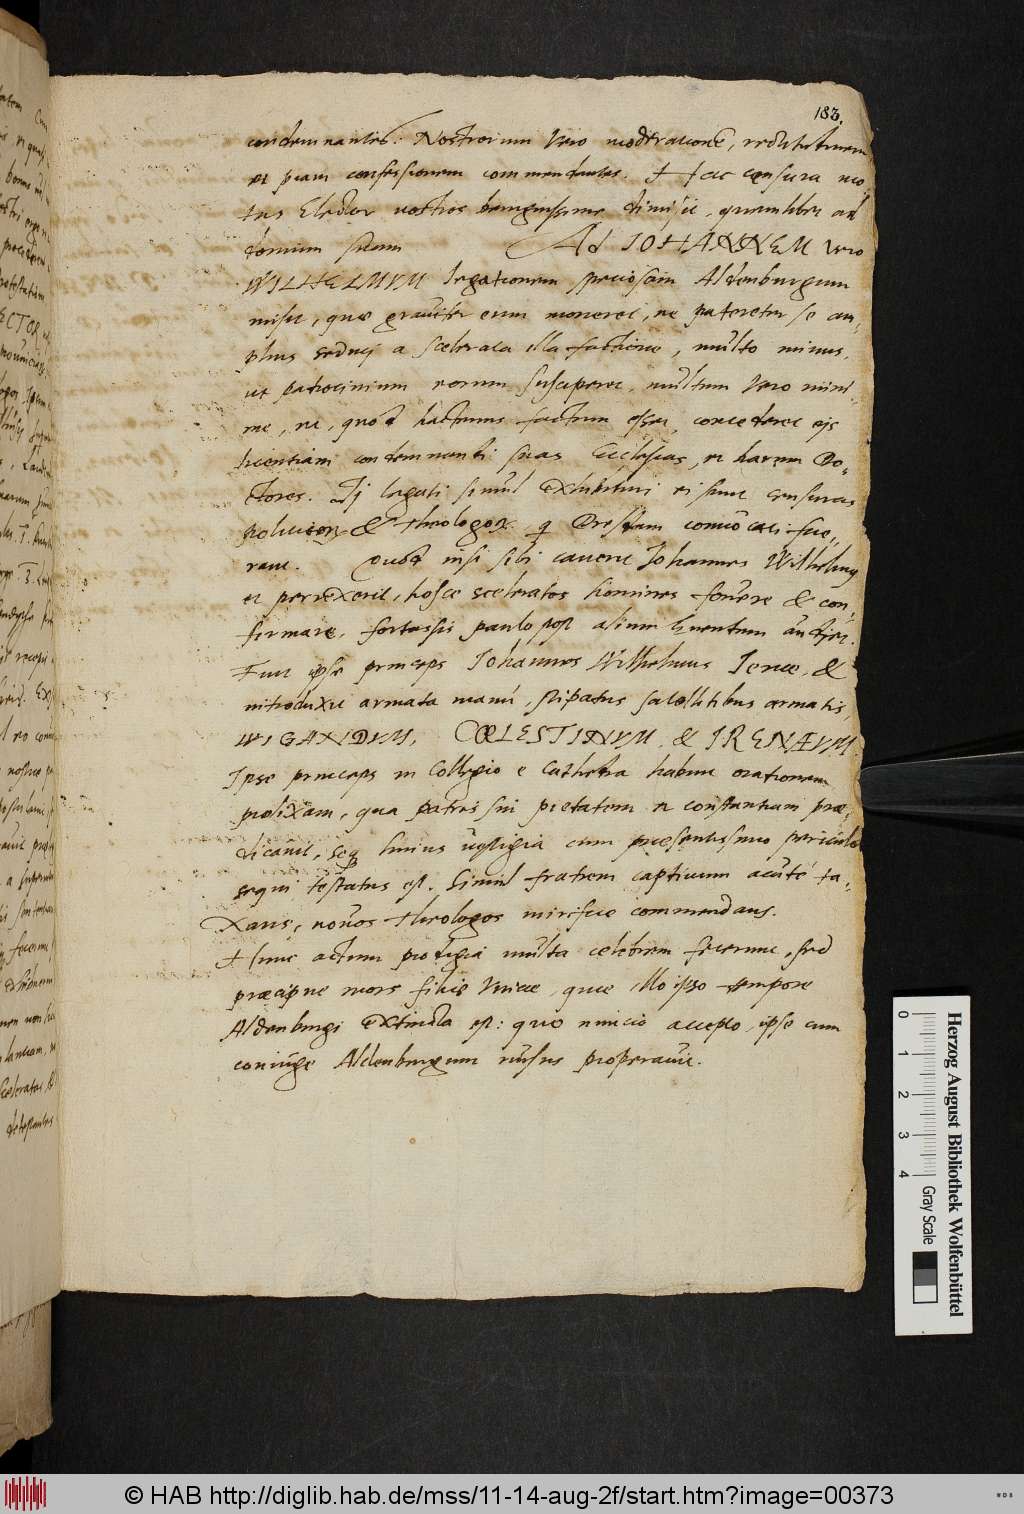 183.
condemnantes: Nostrorum vero moderationē, rectitudinem
et piam confessionem commendantes. Hac censura mo
tus Elector nostros benignissime dimisit, quemlibet ad
domum suam Ad IOHANNEM vero
WILHELMVM legationem speciosam Aldenburgum
misit, quæ graviter eum moneret, ne pateretur se am¬
plius seduci a scelerata illa factione, multo minus,
ut patrocinium eorum susciperet, multum vero mini¬
me, ut, quod hactenus factum esset, concederet eis
licentiam condemnandi suas Ecclesias, et harum Do¬
ctores. Ij legati simul exhibituri ei sunt censuras
politicorū & theologorū, q̄ Dresdam convocati fue¬
rant. Quod nisi sibi caverit Johannes Wilhelmus
et perrexerit, hosce sceleratos homines fovere & con¬
firmare, fortassis paulo post alium eventum audiet.
Fuit ipse princeps Johannes Wilhelmus Jenæ, &
introduxit armata manu, stipatus satellitibus armatis,
WIGANDVM, CŒLESTINVM, & IRENÆVM.
Ipse princeps in Collegio e Cathedra habuit orationem
prolixam, qua patris sui pietatem et constantiam præ¬
dicavit, seq̄ huius vestigia cum præsentissimo periculo
sequi testatus est. Simul fratrem captivum acutè ta¬
xans, novos theologos mirifice commendans.
Hunc actum prodigia multa celebrem fecerunt, sed
præcipue mors filiæ unicæ, quæ illo ipso tempore
Aldenburgi extincta est: quo nuncio accepto, ipse cum
coniuge Aldenburgum rursus properavit.
Herzog August Bibliothek Wolfenbüttel
0 1 2 3 4 Gray Scale
© HAB http://diglib.hab.de/mss/11-14-aug-2f/start.htm?image=00373